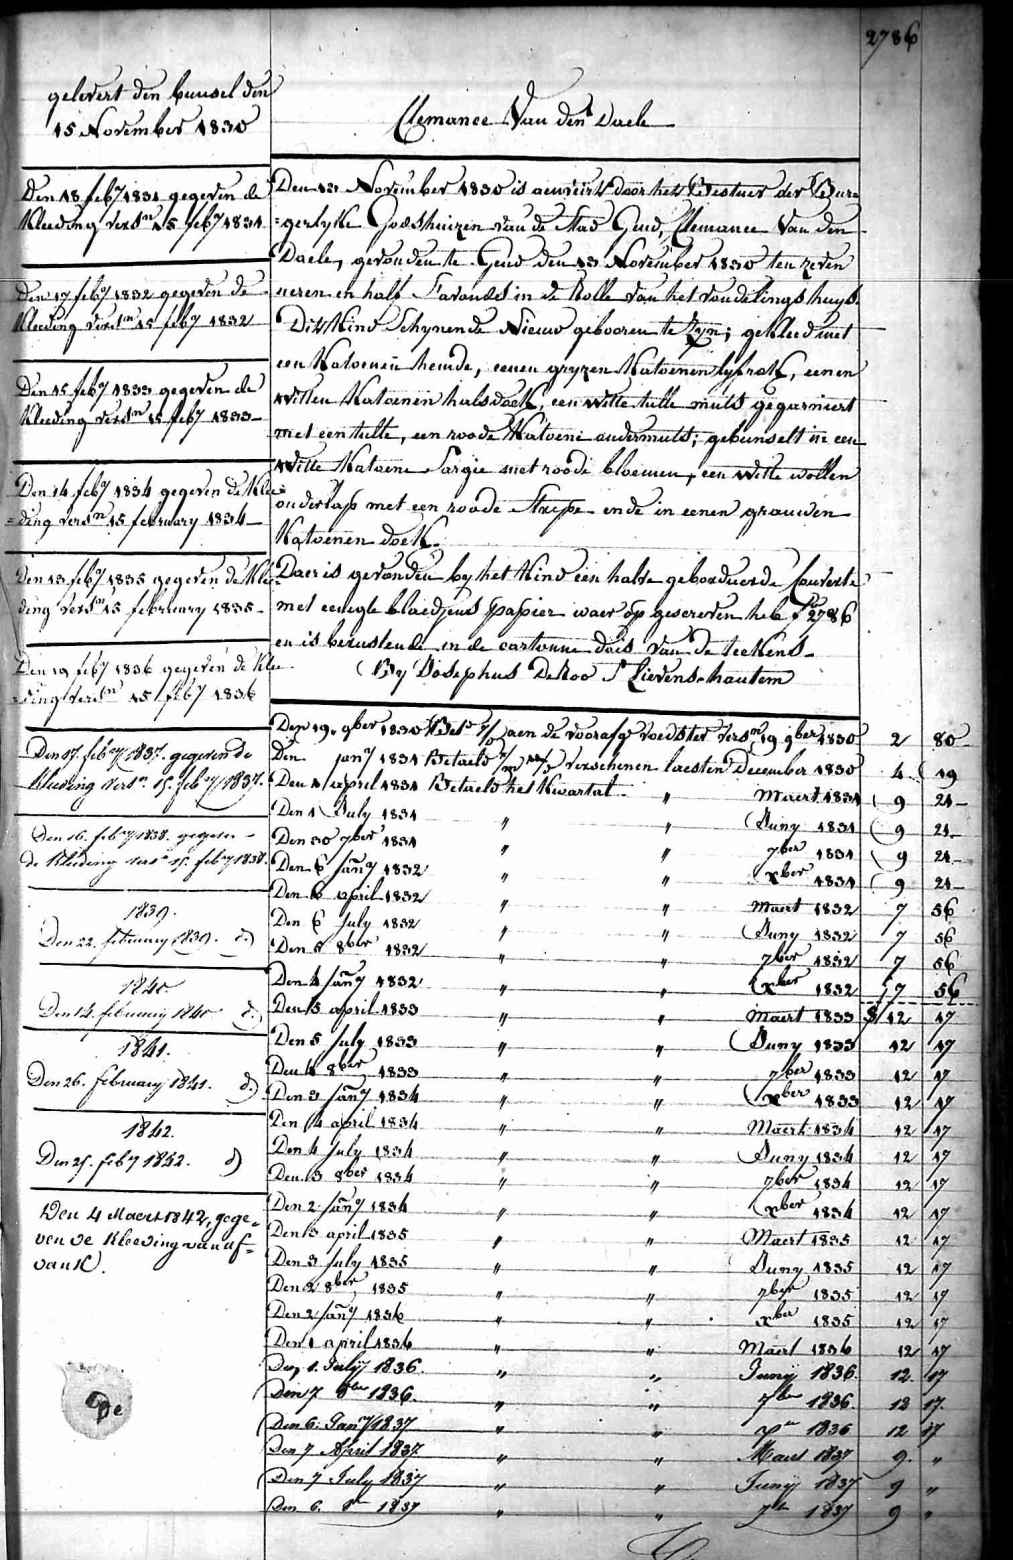 2786
gelevert den bunsel den
15 November 1830
Den 18 feby 1831 gegeven de
Kleeding versn 15 feby 1831
Den 17 feby 1832 gegeven de
Kleeding versn 15 feby 1832
Den 15 feby 1833 gegeven de
Kleeding versn 15 feby 1833
Den 14 feby 1834 gegeven de Klee
=ding versn 15 february 1834
Den 13 feby 1835 gegeven de Klee
ding versn 15 february 1835
Den 19 feby 1836 gegeven de Klee
=ding versn 15 feby 1836
Den 17 feby 1837. gegeven de
Kleeding versn 15 feby 1837.
Den 16. feby 1838. gegeven
de Kleeding versn 15. feby 1838.
1839.
Den 22. february 1839. d)
1840
Den 14. february 1840 d)
1841.
Den 26. february 1841. d)
1842.
Den 25. feby 1842. d)
Den 4 Maert 1842, gege=
ven de Kleeding van
Clemance Van den Daele
Den 13 November 1830 is aenveirt door het Bestuer der Bur=
=gerlyke Godshuizen van de Stad Gend, Clemance Van den
Daele, gevonden te Gend den 13 November 1830 ten zeven
ueren en half S'avonds in de Rolle van het vondelingshuys.
Dit Kind Schynende Nieuw gebooren te Zyn; gekleed met
een Katoenen hemde, eenen gryzen Katoenen lyfrok, eenen
witten Katoenen halsdoek, een witte tulle muts gegarneert
met een tulle, een roode Katoene ondermuts; gebunselt in een
witte Katoene Sargie met roode bloemen, een witte wollen
onderlap met een roode Strepe ende in eenen grauwen
Katoenen doek.
Daer is gevonden by het Kind een halve geborduerde
met blaedjens papier waer op geschreven heb No 2786
en is berustende in de cartonne doos van de teekens
By Josephus De Roo St Lievens-hautem
Den 19. 9ber 1830 aen de voorafge voedster versn 19 9ber 1830 2 80
Den jany 1831 Betaeld verschenen laesten December 1830 4 19
Den 1 april 1831 Betaeld het Kwartal " Maert 1831 9 21
Den 1 July 1831 " " Juny 1831 9 21
Den 30 7ber 1831 " " 7ber 1831 9 21
Den 6 jany 1832 " " xber 1831 9 21
Den 6 april 1832 " " Maert 1832 7 56
Den 6 July 1832 " " Juny 1832 7 56
Den 5 8ber 1832 " " 7ber 1832 7 56
Den 4 jany 1832 " " xber 1832 7 56
Den 5 april 1833 " " Maert 1833 12 17
Den 5 July 1833 " " Juny 1833 12 17
Den 4 8ber 1833 " " 7ber 1833 12 17
Den 3 jany 1834 " " xber 1833 12 17
Den 4 april 1834 " " Maert 1834 12 17
Den 4 July 1834 " " Juny 1834 12 17
Den 3 8ber 1834 " " 7ber 1834 12 17
Den 2 jany 1834 " " xber 1834 12 17
Den 3 april 1835 " " Maert 1835 12 17
Den 3 July 1835 " " Juny 1835 12 17
Den 2 8ber 1835 " " 7ber 1835 12 17
Den 2 jany 1836 " " xber 1835 12 17
Den 1 april 1836 " " Maert 1836 12 17
Den 1. July 1836. " " Juny 1836. 12. 17
Den 7 8ber 1836. " " 7ber 1836. 12 17.
Den 6. Jany 1837 " " 1836 12 17
Den 7 April 1837. " " Maert 1837 9. "
Den 7 July 1837 " " Juny 1837 9 "
Den 6. 8er 1837 " " 7er 1837 9 "